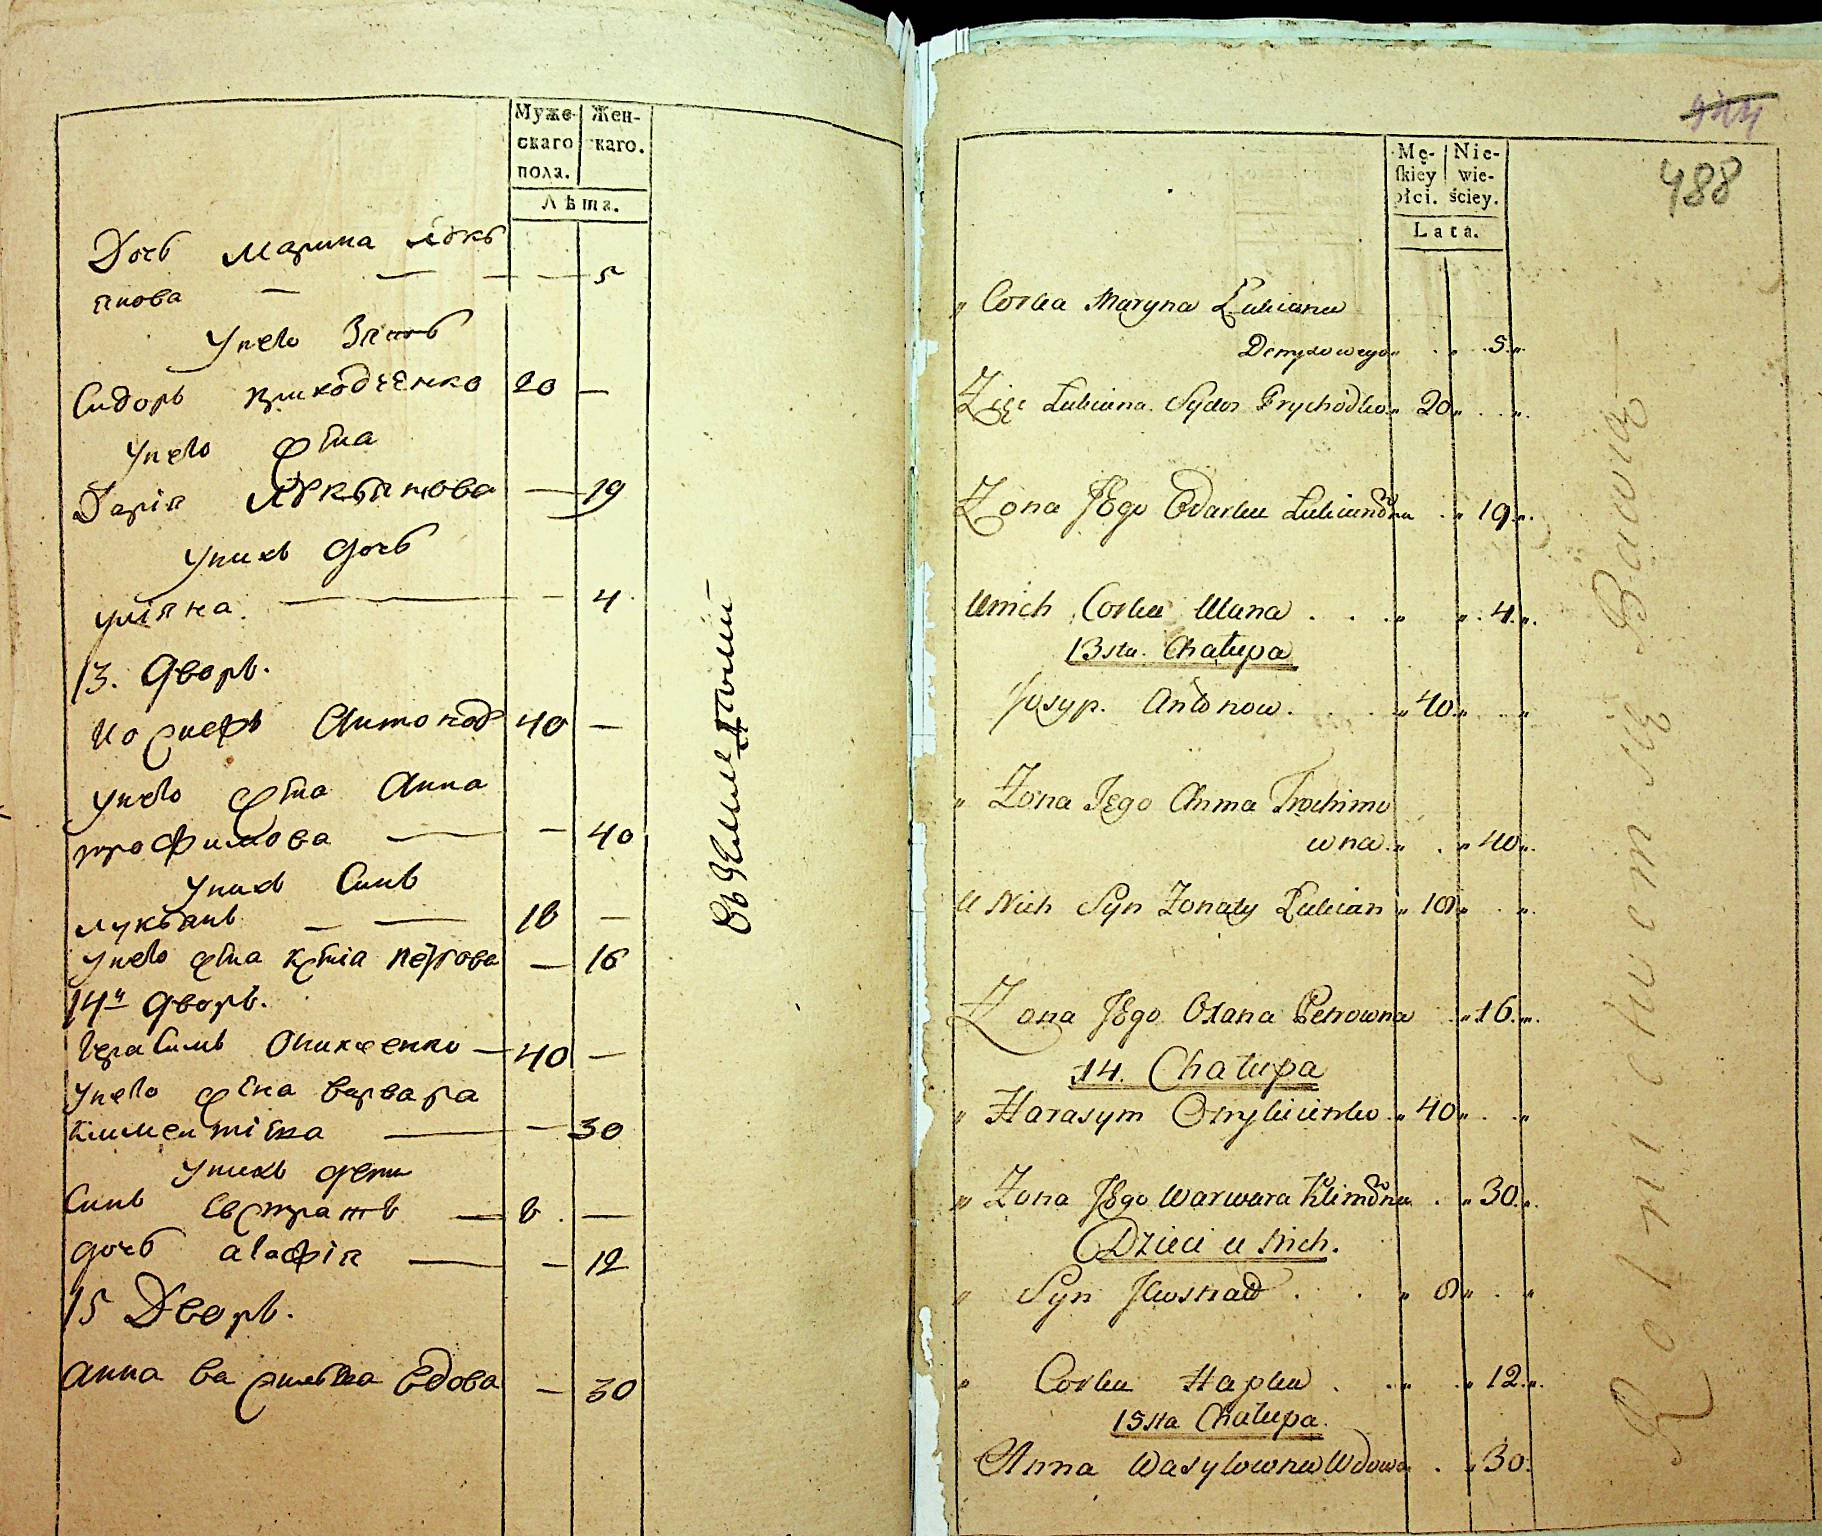 Муже-
скаго
пола.
Жен-
каго.
Лѣта.
Дочь Марина Лукь
янова — — — — 5
Унего Зять
Сидоръ Приходченко 20 —
Унего жена
Дарія Лукьянова — 19
Унихъ дочь
Уліяна — — 4
13. Дворъ.
Иосифъ Антонов 40 —
Унего жена Анна
трофимова — — 40
Унихъ Синъ
Лукьянъ — — 18 —
Унего жена Ксенія Петрова — 16
14й дворъ.
Герасимъ Оникеенко — 40 —
Унего жена Варвара
Климентіевна — — 30
Унихъ дети
Синъ Евстратъ — 8. —
дочь Агафія — — 12
15 Дворъ.
Анна Васильевна Вдова — 30
Mę-
skiey
płci.
Nie-
wie-
ściey.
Lata.
488
„ Corka Maryna Łukiana
Demydowego „ . „ .5.„
Zięć Łukiana Sydor Prychodko „ 20„ . „
Żona Jego Odarka Łukianowna . „ 19„.
Unich Corka Ulana . . „ „ . 4.„.
13sta Chałupa
Josyp Antonow . . „ 40„ . „
„ Żona Jego Anna Trochimo
wna . „ . „ 40„.
U Nich Syn Żonaty Łukian „ 18„ . „
Żona Jego Oxana Petrowna . „ 16.„.
14. Chałupa
„ Harasym Onykiienko „ 40„ . „
„ Żona Jego Warwara Klimowna . „ 30.„.
Dzieci u Nich.
„ Syn Jewstrat . . „ 8„ . „
„ Corka Hapka . „ „ 12.„.
15sta Chałupa.
Anna Wasylowna Wdowa . „ 30.
Rolnictwem się Bawią